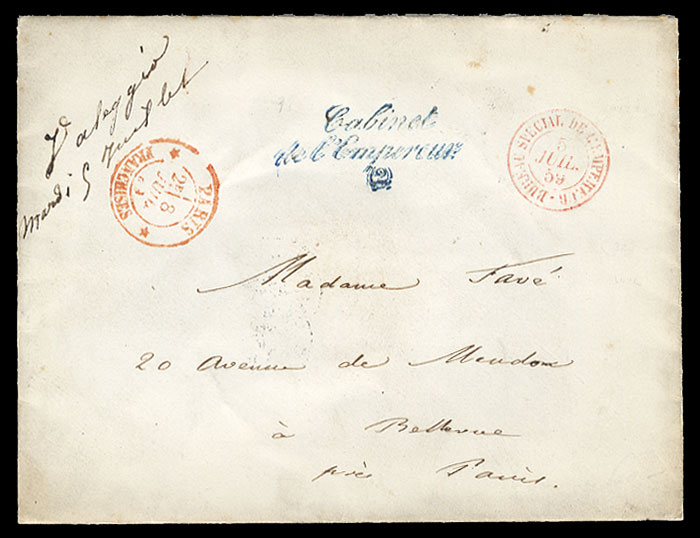 Valeggio
Mardi 5 Juillet
Cabinet
de l'Empereur
BUREAU SPECIAL DE L'EMPEREUR
5
JUIL.
59
PARIS
8
JUIL
59
FRANCHISES
Madame Favé
20 Avenue de Meudon
à Bellevue
près Paris.